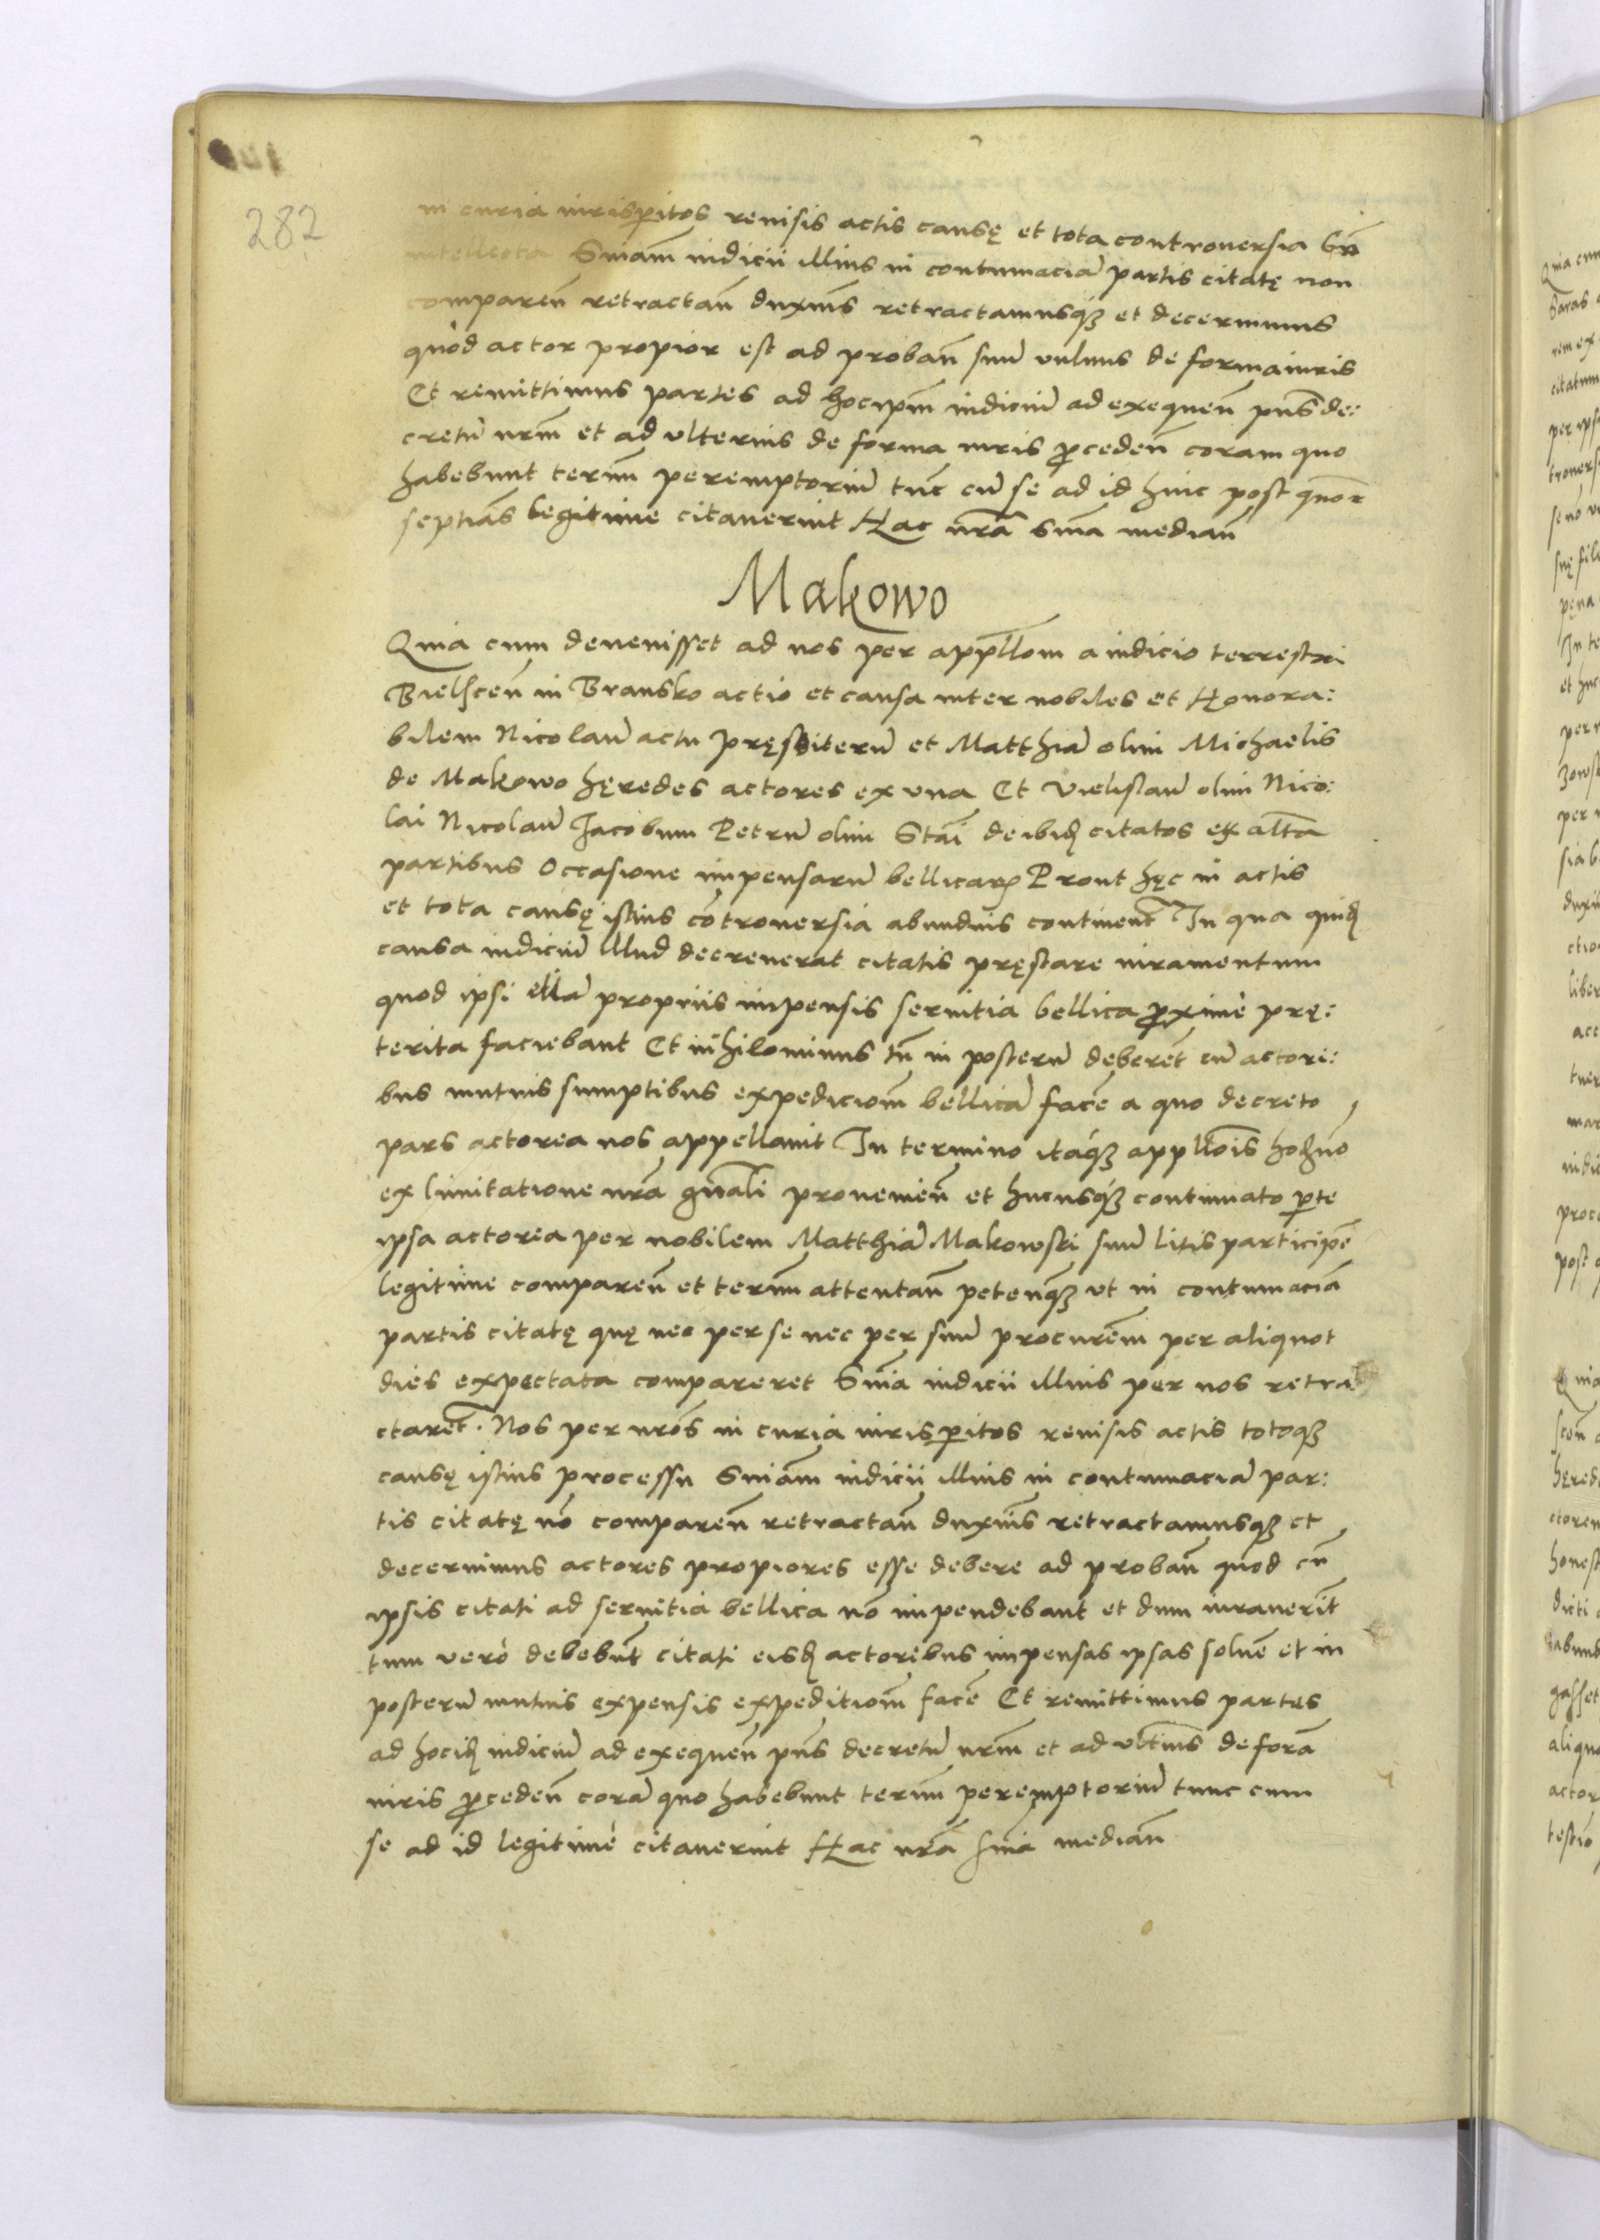 282
in curia iurisperitos reuisis actis causę et tota controuersia bn̄
intellecta Sniam̄ iudicii illius in contumaciā partis citatę non
comparen̄ retractan̄ duxim̄s retractamusq3 et decernimus
quòd actor propior est ad proban̄ suū vulnus de forma iuris
Et remittimus partes ad hoc ipm̄ iudiciū ad exequen̄ pn̄s de:
cretū nrm̄ et ad vlterius de forma iuris proceden̄ coram quo
habebunt termī peremptoriū tūc cū se ad id hinc post quor̄
septiās legitime citauerint Hac nrā snīa median̄
Makowo
Quia cum deuenisset ad nos per appllom̄ a iudicio terrestri
Bielscen̄ in Bransko actio et causa inter nobiles et Honora:
bilem Nicolaū actu pręsbiterū et Matthiā olim Michaelis
de Makowo hęredes actores ex vna Et Vielislaū olim Nico:
lai Nicolaū Jacobum Petrū olim Stāi de ibid citatos ex altā
partibus Occasione impensarū bellicarū Prout hęc in actis
et tota causę istius cōtrouersia abundius continent̄ In qua quid
causa iudiciū illud decreuerat citatis pręstare iuramentum
quod ipsi illā propriis impensis seruitia bellica proximè prę:
terita faciebant Et nihilominus tn̄ in posterū deberēt cū actori:
bus mutuis sumptibus expediciom̄ bellicā facē a quo decreto
pars actorea nos appellauit In termino itáq3 applloīs hodieno
ex limitatione nrā gn̄ali prouenien̄ et hucusq3 continuato pte
ipsa actorea per nobilem Matthiā Makowski suū litis participē
legitime comparen̄ et termī attentan̄ petenq3 vt in contumaciā
partis citatę quę nec per se nec per suū procurēm per aliquot
dies expectata compareret Snīa iudicii illius per nos retra
ctaret̄. Nos per nrōs in curia iurisperitos reuisis actis totoq3
causę istius processu Sniām iudicii illius in contumaciā par:
tis citatę nō comparen̄ retractan̄ duxim̄s retractamusq3 et
decernimus actores propiores esse debere ad proban̄ quod cū
ipsis citati ad seruitia bellica nō impendebant et dum iurauerīt
tum verò debebūt citati eisd actoribus impensas ipsas soluē et in
posterū mutuis expensis expeditiom̄ facē Et remittimus partes
ad hocid iudiciū ad exequen̄ pn̄s decretū nrm̄ et ad vltius de formā
iuris proceden̄ corā quo habebunt termī peremptoriū tunc cum
se ad id legitimè citauerint Hac nrā snīa median̄